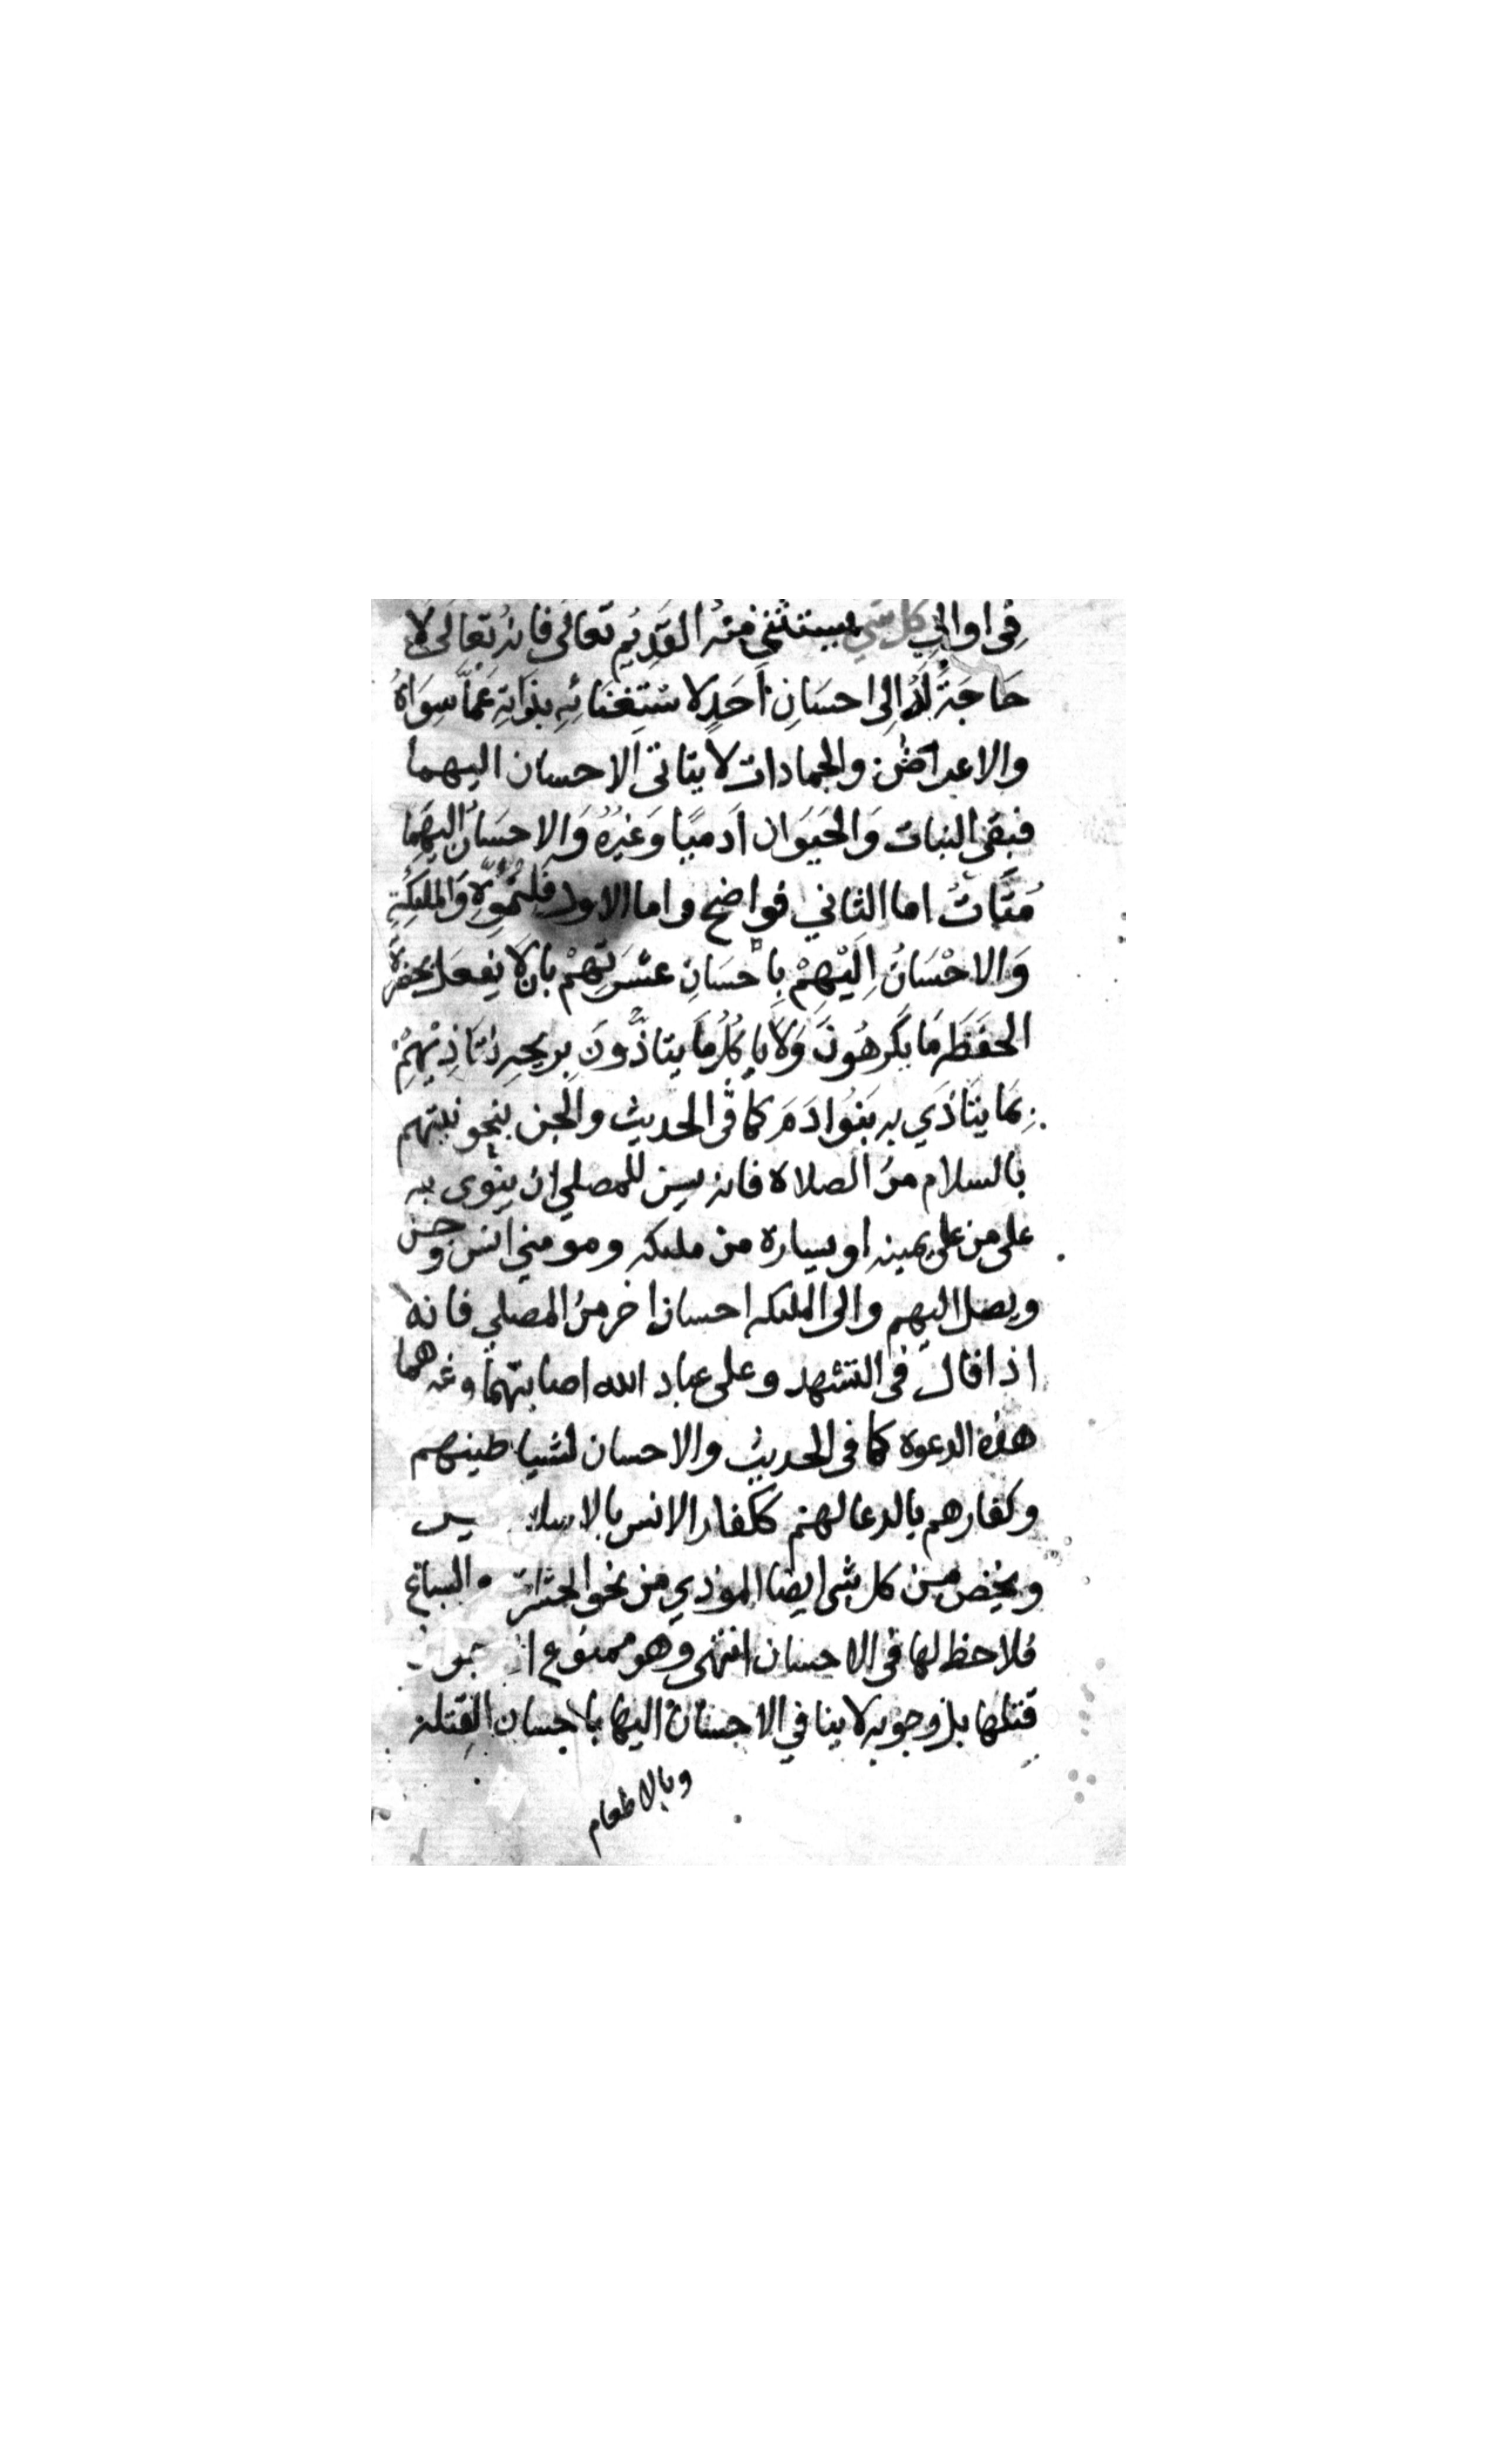 في او الي كل شي يستثني منه القديم تعالى فانه تعالى لا
حَاجَةَ لَهُ الى احسَانِ اَحَدٍ لاسْتِغنَائِهِ بذاتِهِ عَمَّا سِوَاهُ
والاعراض والجمادات لا يتاتى الاحسان اليهما
فبقى النبات وَالحَيَوَان ادميًا وَغيرُهُ وَالاحسَانُ اليهِمَا
مُتَّاتٌ اما الثاني فواضح واما الاول فلنموه وَالمليكَةِ
وَالاحْسَانُ اِلَيْهِمْ بِاحسَانِ عشرَتِهِمْ بان لا يفعَل بحضرة
الحفَظَه مَا يكرهُونَ وَلا ياكلُ مَا يتاذَّونَ بريحِه لتَاذِيْهِمْ
بمَا يتَاذَي به بَنُوا ادَمَ كما في الحديث والجن بنحو نيتهم
بالسلام من الصلاه فانه يسن للمصلي ان ينوى به
على من على يمينه او يساره من مليكه ومومني انس وجن
ويصل اليهم والى المليكه احسان اخر من المصلي فانه
اذا قال في التشهد وعلى عباد الله اصابتهما وغيرهما
هذه الدعوه كما فى الحديث والاحسان لشياطينهم
وكفارهم بالدعا لهم ككفار الانس بالاسلا
ويخص من كل شى ايضا الموذي من نحو الحشرات والسباع
فلاحظ لها فى الاحسان انتهى وهو ممنوع اذ جواز
قتلها بل وجوبه لا ينافي الاحسان اليها باحسان القتله
وبالاطعام